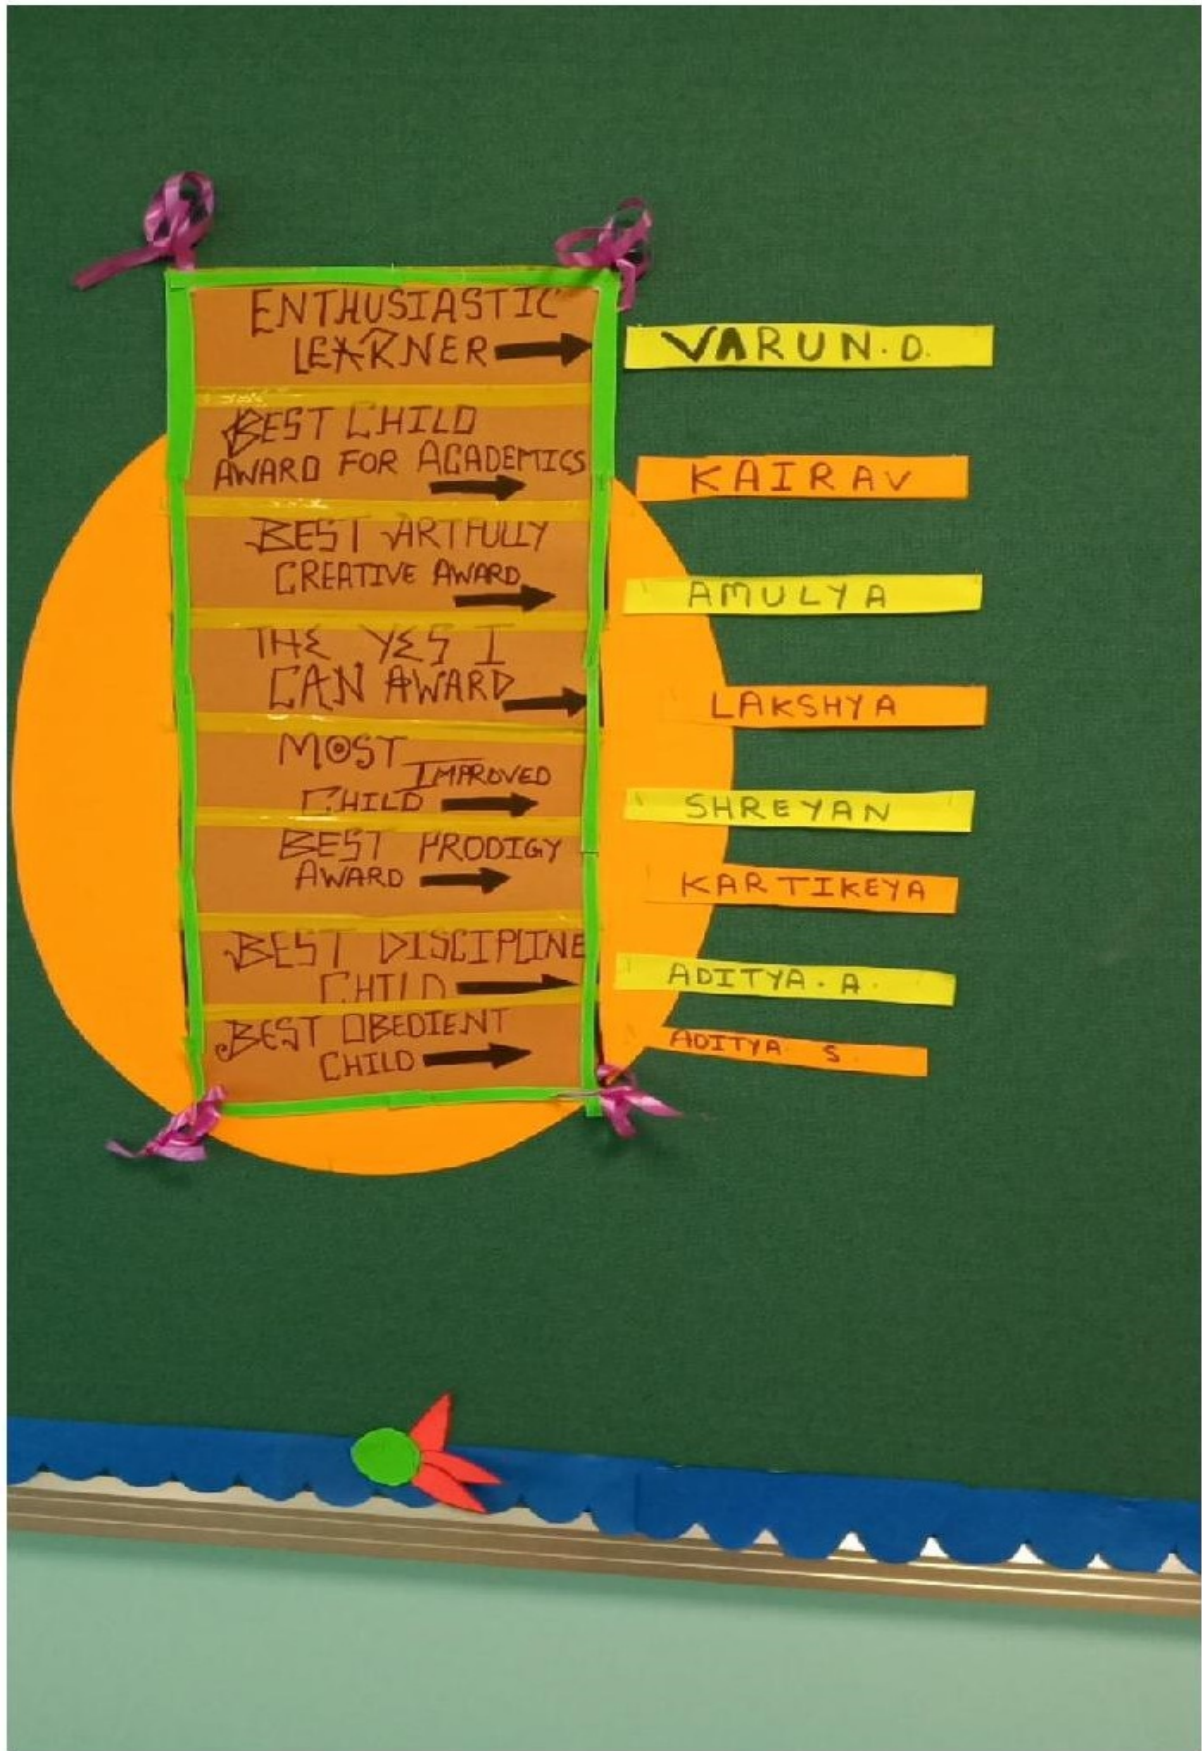 ENTHUSIASTIC
LEARNER → VARUN.D.
BEST CHILD
AWARD FOR ACADEMICS
→ KAIRAV
BEST ARTFULLY
CREATIVE AWARD → AMULYA
THE YES I
CAN AWARD → LAKSHYA
MOST IMPROVED
CHILD → SHREYAN
BEST PRODIGY
AWARD → KARTIKEYA
BEST DISCIPLINE
CHILD → ADITYA.A.
BEST OBEDIENT
CHILD → ADITYA S.